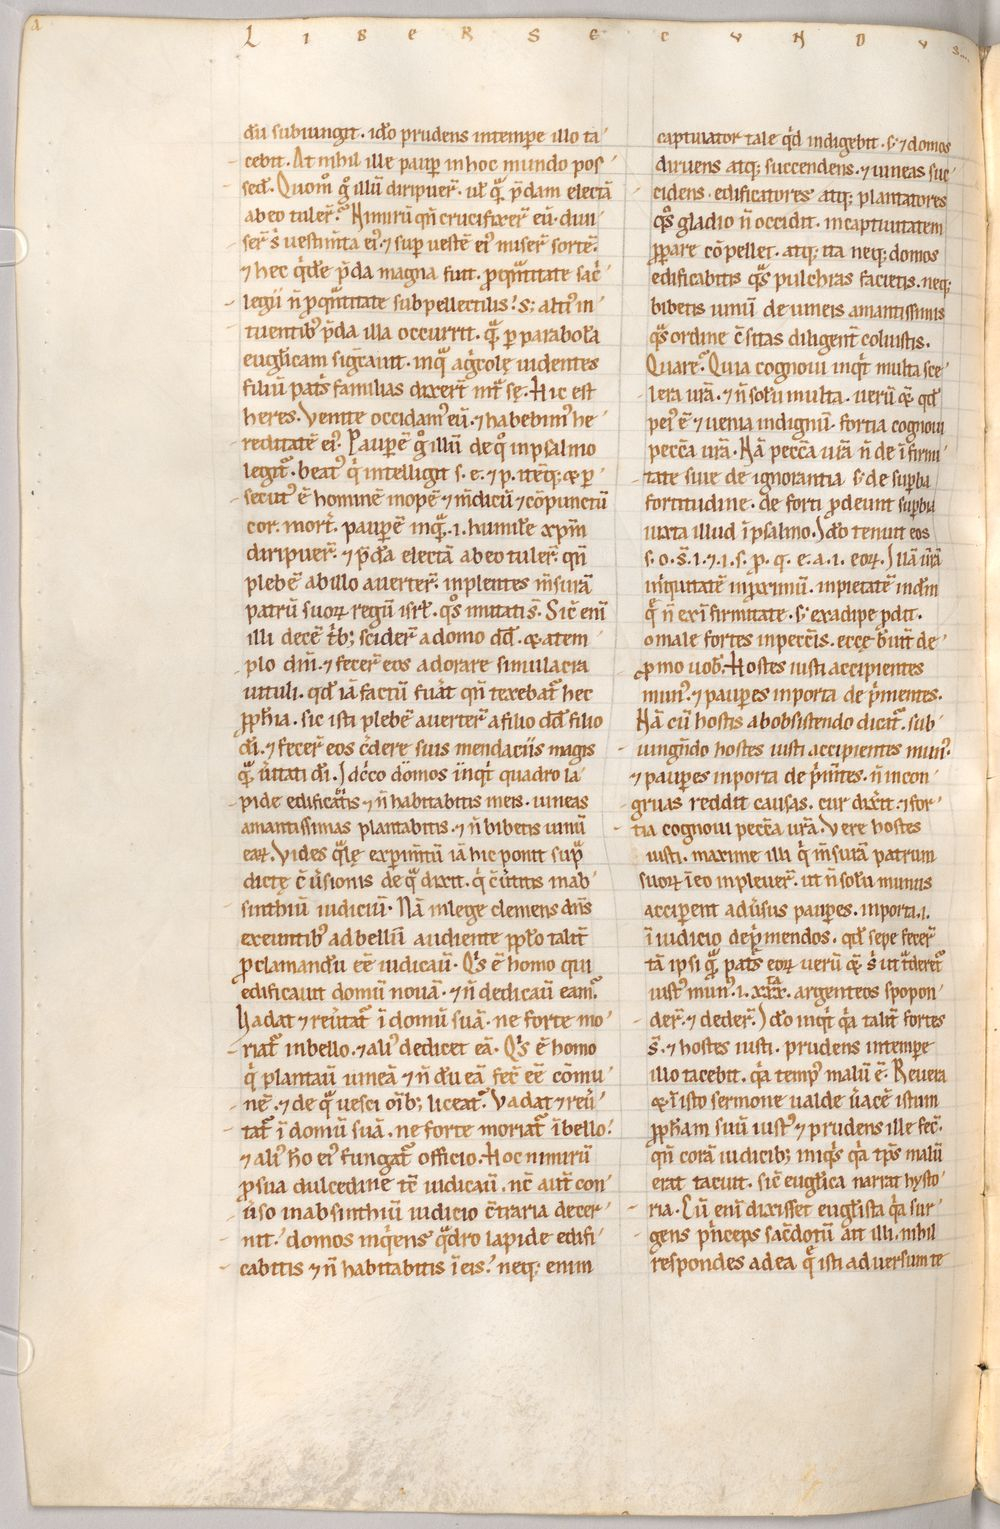 LIBER SECUNDUS
dũ subiungit. ido prudens intempe illo ta
cebit. At nihil ille paup in hoc mundo pos
sed. Quom g illũ diripuer. ul q pdam electã
ab eo tuler. Nimirũ qñ crucifixer eũ. diui
ser s uestimta ei. ⁊ sup uestẽ ei miser sortẽ.
⁊ hec qde pda magna fuit. p qntitate sac
legii ñ p qntitate subpellectilis. s; alti in
tuentib pda illa occurrit. q p parabola
euglicam sigcauit. inq agcolę uidentes
filiũ pats familias dixert int se. Hic est
heres. Venite occidam eũ. ⁊ habebim he
reditatẽ ei. Pauperẽ g illũ de q in psalmo
legit. beat q intelligit s. e. ⁊ p. itẽq; & p
secut ẽ hominẽ inopẽ ⁊ mdicũ ⁊ cõpunctũ
cor. mort. pauperẽ inq. .i. humile xpm
diripuer. ⁊ pda electã ab eo tuler. qñ
plebẽ ab illo auerter. inplentes msurã
patrũ suoꝝ regũ isrl. qs imitati s. Sic eni
illi decẽ tb; scider a domo dd. & a tem
plo dni. ⁊ fecer eos adorare simulacra
uituli. qd iã factũ fuat qñ texebat hec
pphia. sic isti plebẽ auerter a filio dd filio
di. ⁊ fecer eos cdere suis mendaciis magis
q uitati di. Idcco domos inqt quadro la
pide edificatis ⁊ ñ habitabitis in eis. uineas
amantissimas plantabitis. ⁊ ñ bibetis uinũ
eaꝝ. Vides qlę experimtũ iã hic ponit sup
dictę cusionis de q dixit. q cutitis in ab
sinthiũ iudiciũ. Nã in lege clemens dns
exeuntib ad bellũ audiente pplo talit
pclamandũ eẽ iudicauit. Qs ẽ homo qui
edificauit domũ nouã. ⁊ ñ dedicauit eam.
Vadat ⁊ reutat ĩ domũ suã. ne forte mo
riat in bello. ⁊ ali dedicet eã. Qs ẽ homo
q plantauit uineã ⁊ ñ dũ eã fec eẽ cõmu
nẽ. ⁊ de q uesci oib; liceat. Vadat ⁊ reu
tat ĩ domũ suã. ne forte moriat ĩ bello.
⁊ ali ho ei fungat officio. Hoc nimirũ
p sua dulcedine te iudicauit. nc aut con
uso in absinthiũ iudicio ctraria decer
nit. domos inqens qdro lapide edifi
cabitis ⁊ ñ habitabitis ĩ eis. neq; enim
captiuator tale qd indigebit. s; ⁊ domos
diruens atq; succendens. ⁊ uineas suc
cidens. edificatores atq; plantatores
qs gladio ñ occidit. in captiuitatem
pperare cõpellet. atq; ita neq; domos
edificabitis qs pulchras facietis. neq;
bibetis uinũ de uineis amantissimis
qs ordine csitas diligent coluistis.
Quare. Quia cognoui inqt multa sce
lera urã. ⁊ ñ solũ multa. uerũ & qd
pei ẽ ⁊ uenia indignũ. fortia cognoui
peccã urã. Nã peccã urã ñ de ĩ firmi
tate siue de ignorantia s; de supbia
fortitudine. de forti pdeunt supbia
iuxta illud ĩ psalmo. Ido tenuit eos
s. o. s. i. ⁊ i. s. p. q. e. a. i. eoꝝ. Nã urã
iniquitatẽ in pximũ. inpietatẽ in dm
q ñ ex ĩfirmitate. s; ex adipe pdit.
o male fortes in peccis. ecce uenit de
pmo uob. Hostes iusti accipientes
mun. ⁊ pauperes in porta depmentes.
Nã cũ hostis ab obsistendo dicat. sub
iungndo hostes iusti accipientes mun.
⁊ pauperes in porta depmtes. ñ incon
gruas reddit causas. cur dixit. ⁊ for
tia cognoui peccã urã. Vere hostes
iusti. maxime illi q msurã patrum
suoꝝ ĩ eo inpleuer. ut ñ solũ munus
acciperent adusus pauperes. in porta .i.
ĩ iudicio depmendos. qd sepe fecer
tã ipsi q pats eoꝝ uerũ & s; ut tderet
iust mun. .i. xxx. argenteos spopon
der. ⁊ deder. Ido inqt qa talit fortes
s. ⁊ hostes iusti. prudens in tempe
illo tacebit. qa temp malũ ẽ. Reuera
& ĩ isto sermone ualde uacẽ istum
ppham suũ iust ⁊ prudens ille fec.
qñ corã iudicib; iniqs qa tps malũ
erat tacuit. sic euglica narrat hysto
ria. Cũ eni dixisset euglista qa sur
gens pnceps sacdotũ ait illi. nihil
respondes ad ea q isti aduersum te